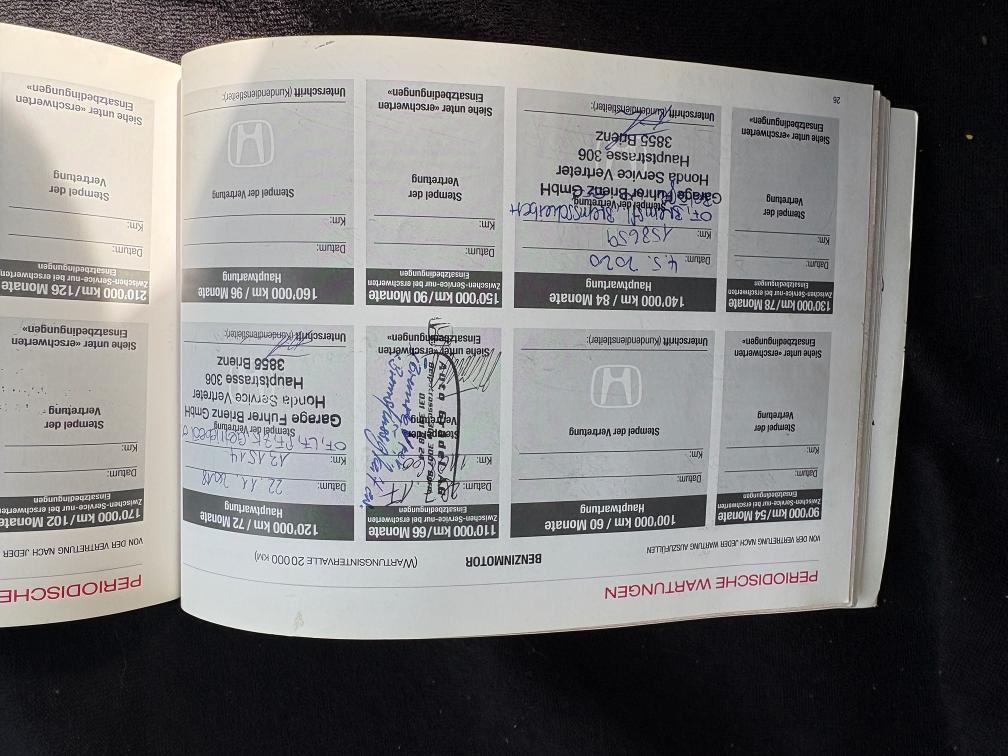 PERIODISCHE WARTUNGEN
VON DER VERTRETUNG NACH JEDER WARTUNG AUSZUFÜLLEN
BENZINMOTOR
(WARTUNGSINTERVALLE 20 000 KM)
90'000 km / 54 Monate
Zwischen-Service-nur bei erschwerten
Einsatzbedingungen
Datum:
Km:
Stempel der
Vertretung
Siehe unter «erschwerten
Einsatzbedingungen»
100'000 km / 60 Monate
Hauptwartung
Datum:
Km:
Stempel der Vertretung
Unterschrift (Kundendienstleiter):
110'000 km / 66 Monate
Zwischen-Service-nur bei erschwerten
Einsatzbedingungen
Datum:
Km:
Stempel der
Vertretung
Auto Gruder AG
Siehe unter «erschwerten
Einsatzbedingungen»
120'000 km / 72 Monate
Hauptwartung
Datum: 22.11.2018
Km: 131514
OF, LF, PF,
Stempel der Vertretung
Garage Fuhrer Brienz GmbH
Honda Service Vertreter
Hauptstrasse 306
3855 Brienz
Unterschrift (Kundendienstleiter):
130'000 km / 78 Monate
Zwischen-Service-nur bei erschwerten
Einsatzbedingungen
Datum:
Km:
Stempel der
Vertretung
Siehe unter «erschwerten
Einsatzbedingungen»
140'000 km / 84 Monate
Hauptwartung
Datum: 4.5.2020
Km: 158659
OF, Bremsfl, Bremsscheiben
Stempel der Vertretung
Garage Fuhrer Brienz GmbH
Honda Service Vertreter
Hauptstrasse 306
3855 Brienz
Unterschrift (Kundendienstleiter):
150'000 km / 90 Monate
Zwischen-Service-nur bei erschwerten
Einsatzbedingungen
Datum:
Km:
Stempel der
Vertretung
Siehe unter «erschwerten
Einsatzbedingungen»
160'000 km / 96 Monate
Hauptwartung
Datum:
Km:
Stempel der Vertretung
Unterschrift (Kundendienstleiter):
26
PERIODISCHE
VON DER VERTRETUNG NACH JEDER
170'000 km / 102 Monate
Zwischen-Service-nur bei erschwerten
Einsatzbedingungen
Datum:
Km:
Stempel der
Vertretung
Siehe unter «erschwerten
Einsatzbedingungen»
210'000 km / 126 Monate
Zwischen-Service-nur bei erschwerten
Einsatzbedingungen
Datum:
Km:
Stempel der
Vertretung
Siehe unter «erschwerten
Einsatzbedingungen»